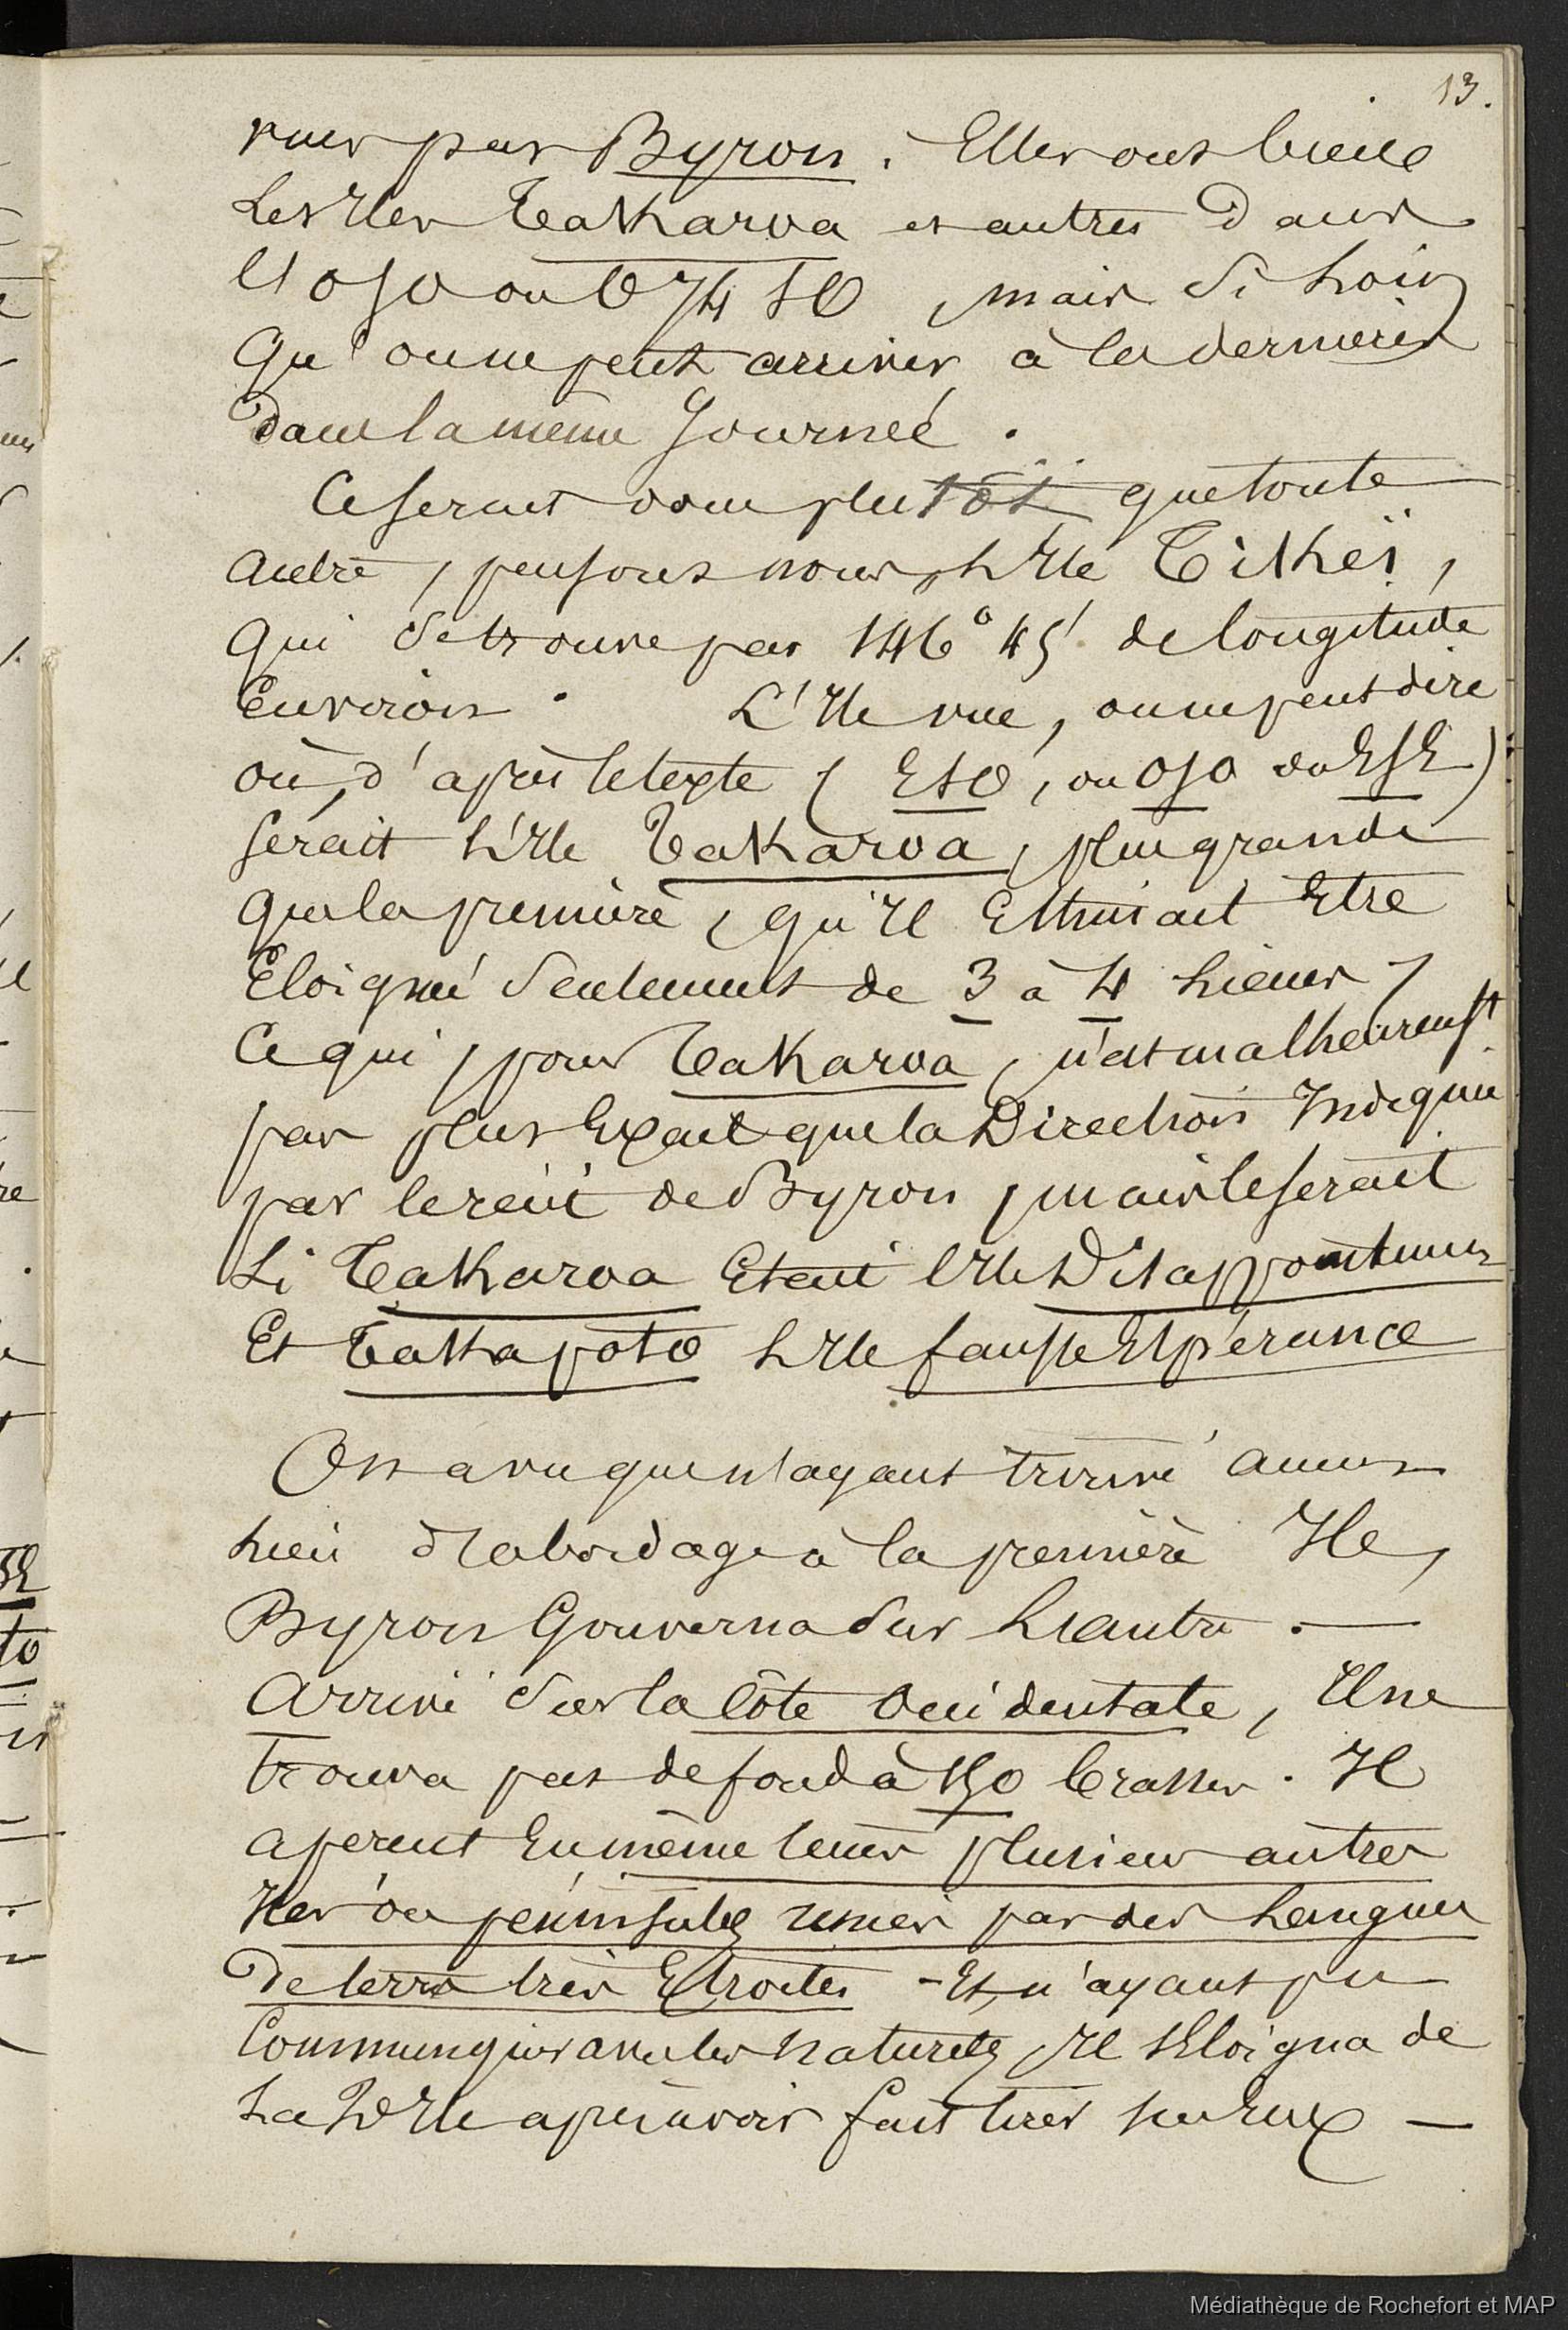 13.
vues par Byron. Elles ont bien
les Iles Takaroa et autres dans
l'OSO ou O 1/4 SO, mais si loin
qu'on ne peut arriver à la dernière
dans la même journée.
Ce serait donc plutôt que toute
autre, pensons nous, l'Ile Tikheï,
qui se trouve par 146° 45' de longitude
environ. L'Ile vue, on ne peut dire
où, d'après le texte (ESO, ou OSO ou ESE)
serait l'Ile Takaroa, plus grande
que la première, qu'il estimait être
éloigné seulement de 3 à 4 lieues,
ce qui, pour Takaroa, n'est malheureust
pas plus exact que la Direction indiquée
par le récit de Byron, mais le serait
si Takaroa était l'Ile Disappointment
et Takapoto l'Ile fausse Espérance
On a vu que n'ayant trouvé aucun
lieu d'abordage à la première Ile,
Byron gouverna sur l'autre. —
Arrivé sur la côte occidentale, il ne
trouva pas de fond à 150 brasses. Il
aperçut en même tems plusieurs autres
Iles ou péninsules unies par des langues
de terre très étroites - Et, n'ayant pu
communiquer avec les naturels, il s'éloigna de
la 2e Ile après avoir fait tirer sur eux —
Médiathèque de Rochefort et MAP